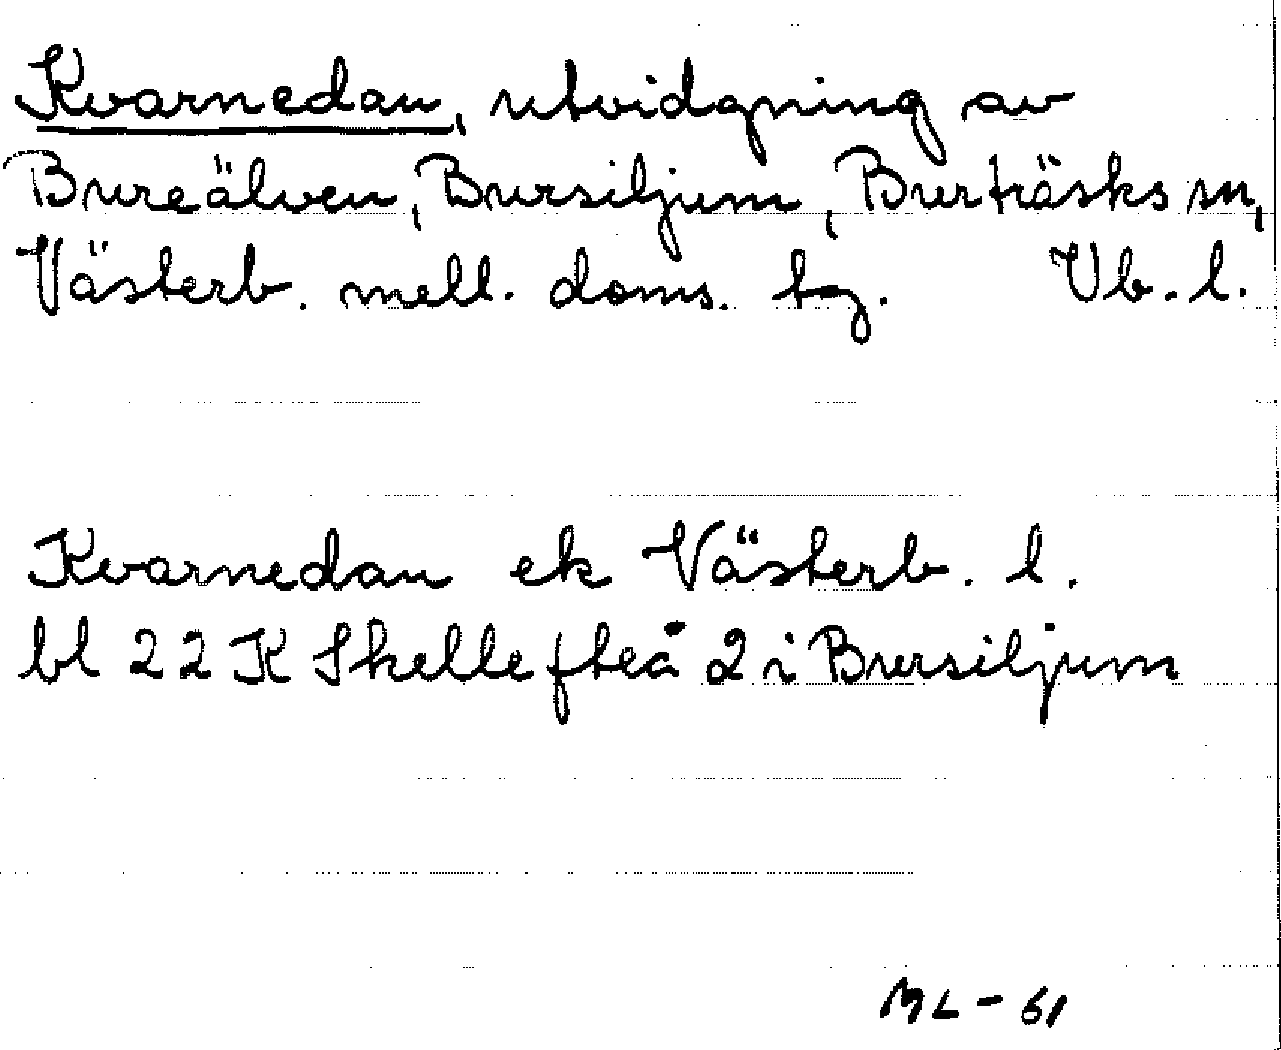 Kvarnedan, utvidgning av
Bureälven, Bursiljum, Burträsks sn,
Västerb. mell. doms. tg. Vb. l.
Kvarnedan ek Västerb. l.
bl 22 K Skellefteå 2 i Bursiljum
ML - 61